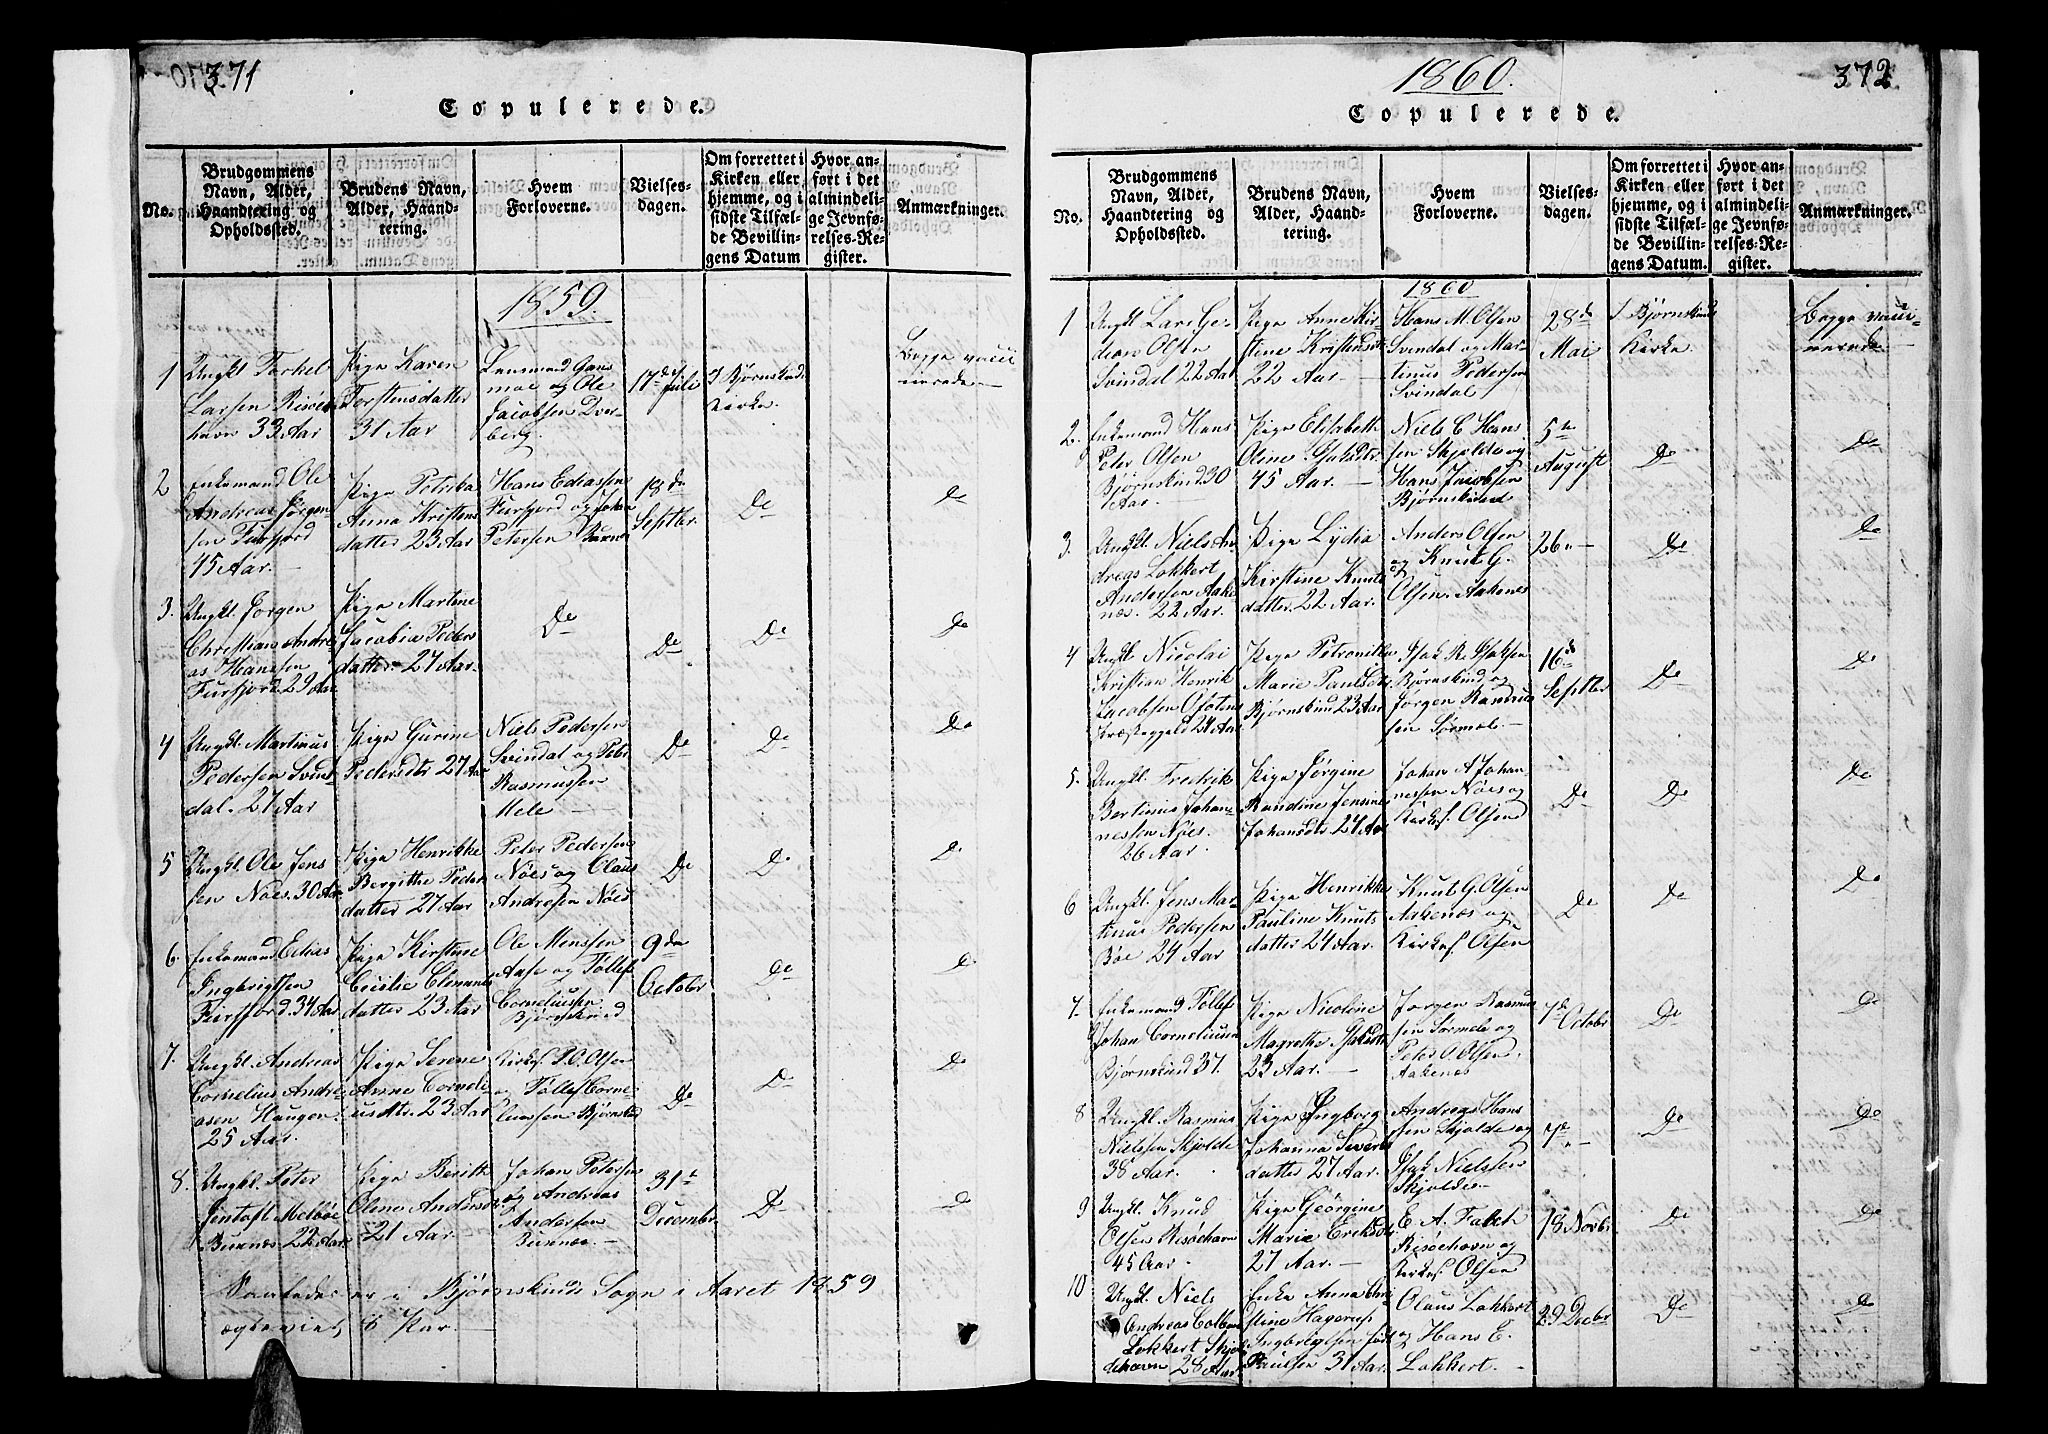 371
Copulerede.
No.
Brudgommens
Navn, Alder,
Haandtering og
Opholdssted.
Brudens Navn,
Alder, Haand-
tering.
Hvem
Forloverne.
Vielses-
dagen.
Om forrettet i
Kirken eller
hjemme, og i
sidste Tilfæl-
de Bevillin-
gens Datum
Hvor an-
ført i det
almindeli-
ge Jevnfø-
relses-Re-
gister.
Anmærkninger.
1859.
1
Ungkl Torkel
Larsen Risøe-
havn 33 Aar
Pige Karen
Torstensdatter
31 Aar
Lensmand
og Ole
Jacobsen Dver-
berg.
17de Juli
I Bjørnskinds
Kirke.
Begge vacci
nerede
2
Enkemand Ole
Andreas Jørgen-
sen Furfjord
45 Aar.
Pige Petrika
Anna Kristens
datter 23 Aar
Hans Ediassen
Furfjord og Johan
Petersen Buxnes
18de
Septbr.
Do
Do
3.
Ungkl. Jørgen
Christian Andre
as Hanssen
Furfjord 29 Aar
Pige Martine
Jacobia Peders
datter 27 Aar.
Do
Do
Do
Do
4
Ungkl. Martinus
Pedersen Svin
dal. 27 Aar
Pige Gurine
Pedersdtr 27 Aar
Niels Pedersen
Svindal og Peter
Rasmussen
Mele
Do
Do
Do
5
Ungkl. Ole Jens
sen Nöes. 30 Aar
Pige Henrikke
Bergithe Peder
datter 27 Aar
Peder Pedersen
Nöes og Claus
Andresen Nöes
Do
Do
Do
6.
Enkemand Edias
Ingbrigtsen
Furfjord 34 Aar
Pige Kirstine
Cecilie Clemmes
datter 23 Aar
Ole Monssen
Aase og Tollef
Corneliussen
Bjørnskind
9de
October
Do
Do
7.
Ungkl. Andreas
Cornelius Andre
asen Haugen.
25 Aar.
Pige Serene
Anne Corneli
usdtr. 23 Aar
Kirks. P. O. Olsen
og Tollef Corne
liussen Bjørnskind
Do
Do
Do
8.
Ungkl. Peter
Jentoft Melböe
Buxnes 22 Aar
Pige Berith
Oline Andersdtr
21 Aar
Johan Petersen
og Andreas
Andersen
Buxnes.
31te
Decembr
Do
Do
Saaledes er i Bjørnskinds Sogn i Aaret 1859
ægteviet 8 Par
1860.
372
Copulerede.
No.
Brudgommens
Navn, Alder,
Haandtering og
Opholdssted.
Brudens Navn,
Alder, Haand-
tering.
Hvem
Forloverne.
Vielses-
dagen.
Om forrettet i
Kirken eller
hjemme, og i
sidste Tilfæl-
de Bevillin-
gens Datum.
Hvor an-
ført i det
almindeli-
ge Jevnfø-
relses-Re-
gister.
Anmærkninger.
1860
1
Ungkl Lars Ge-
dion Olsen
Svindal 22 Aar
Pige Anne Kir-
stine Kristensdtr
22 Aar.
Hans M. Olsen
Svendal og Mar-
tinus Pedersen
Svindal
28de
Mai
I Bjørnskinds
Kirke.
Begge vacci-
nerede
2.
Enkemand Hans
Peter Olsen
Bjørnskind 30
Aar.
Pige Elisabeth
Oline Isaksdtr
45 Aar.
Niels C Hans
sen Skjolde og
Hans Jacobsen
Bjørnskind
5te
August
Do
Do
3.
Ungkl. Niels An
dreas Lokkert
Andersen Aake
nes. 22 Aar.
Pige Lydia
Kirstine Knuts
datter. 22 Aar.
Anders Olsen
og Knut G.
Olsen. Aakenes
26 "
Do
Do
4
Ungkl Nicolai
Kristian Henrik
Jacobsen Ofotens
Præstegjeld 24 Aar
Pige Petronille
Marie Paulsdtr
Bjørnskind 23 Aar
Isak R. Isaksen
Bjørnskind og
Jørgen Rasmus
sen Sørmele.
16de
Septbr
Do
Do
5.
Ungkl. Fredrik
Bertinus Johan-
nessen Nöes.
26 Aar.
Pige Jørgine
Randine Jensine
Johansdtr 24 Aar
Johan A Johan-
nessen Nöes og
Kirks. Olsen
Do
Do
Do
6
Ungkl. Jens Mar-
tinus Pedersen
Böe 24 Aar
Pige Henrikke
Pauline Knuts
datter 24 Aar.
Knut G. Olsen
Aakenes og
Kirks. Olsen
Do
Do
Do
7
Enkemand Tollef
Johan Corneliusen
Bjørnskind 37.
Pige Nicoline
Magrethe Isaksdtr
23 Aar.
Jorgen Rasmus
sen Sørmele og
Peter O. Olsen.
Aakenes
7de October
Do
Do
8
Ungkl. Rasmus
Nielssen Skjolde
38 Aar.
Pige Ingborg
Johanna Severts
datter 27 Aar.
Andreas Hans
sen Skjolde og
Isak Nielssen
Skjolde
7de "
Do
Do
9
Ungkl. Knud
Olsen Risöehavn
45 Aar
Pige Georgine
Marie Eriksdtr
27 Aar.
E. A. Falch
Risöehavn og
Kirks. Olsen
18 Novbr
Do
Do
10
Ungkl. Niels
Andreas Colban
Lokkert Skjol
dehavn 28 Aar
Enke Anna Chri
stine Hagerup
Ingbrigtsen født
Paulsen 31 Aar.
Olaus Lokkert
og Hans E.
Lokkert.
29 Decbr
Do
Do